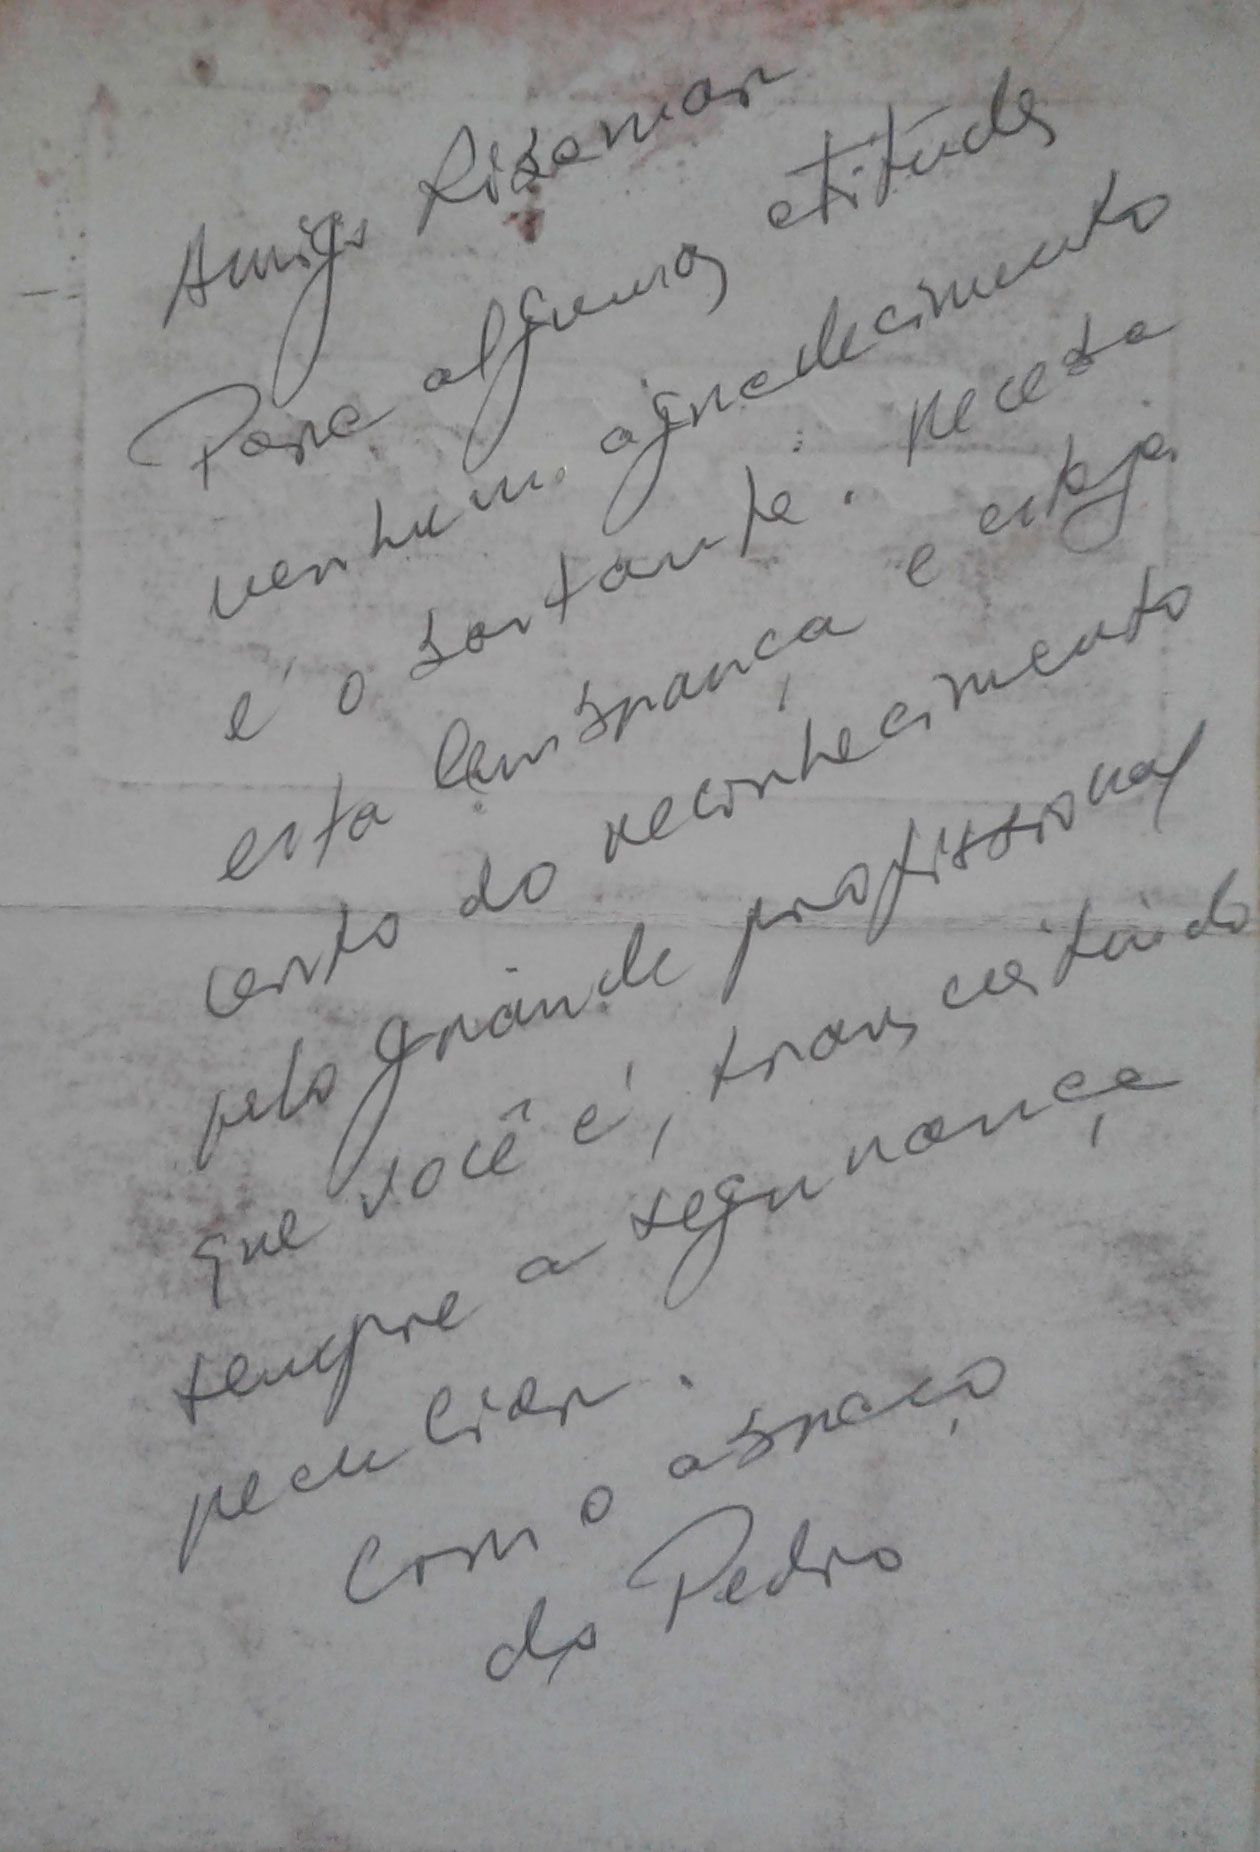 Amigo Risomar
Para algumas atitudes
nenhum agradecimento
é o bastante. Receba
esta lembrança e esteja
certo do reconhecimento
pelo grande profissional
que você é, transmitindo
sempre a segurança
peculiar.
Com o abraço
do Pedro